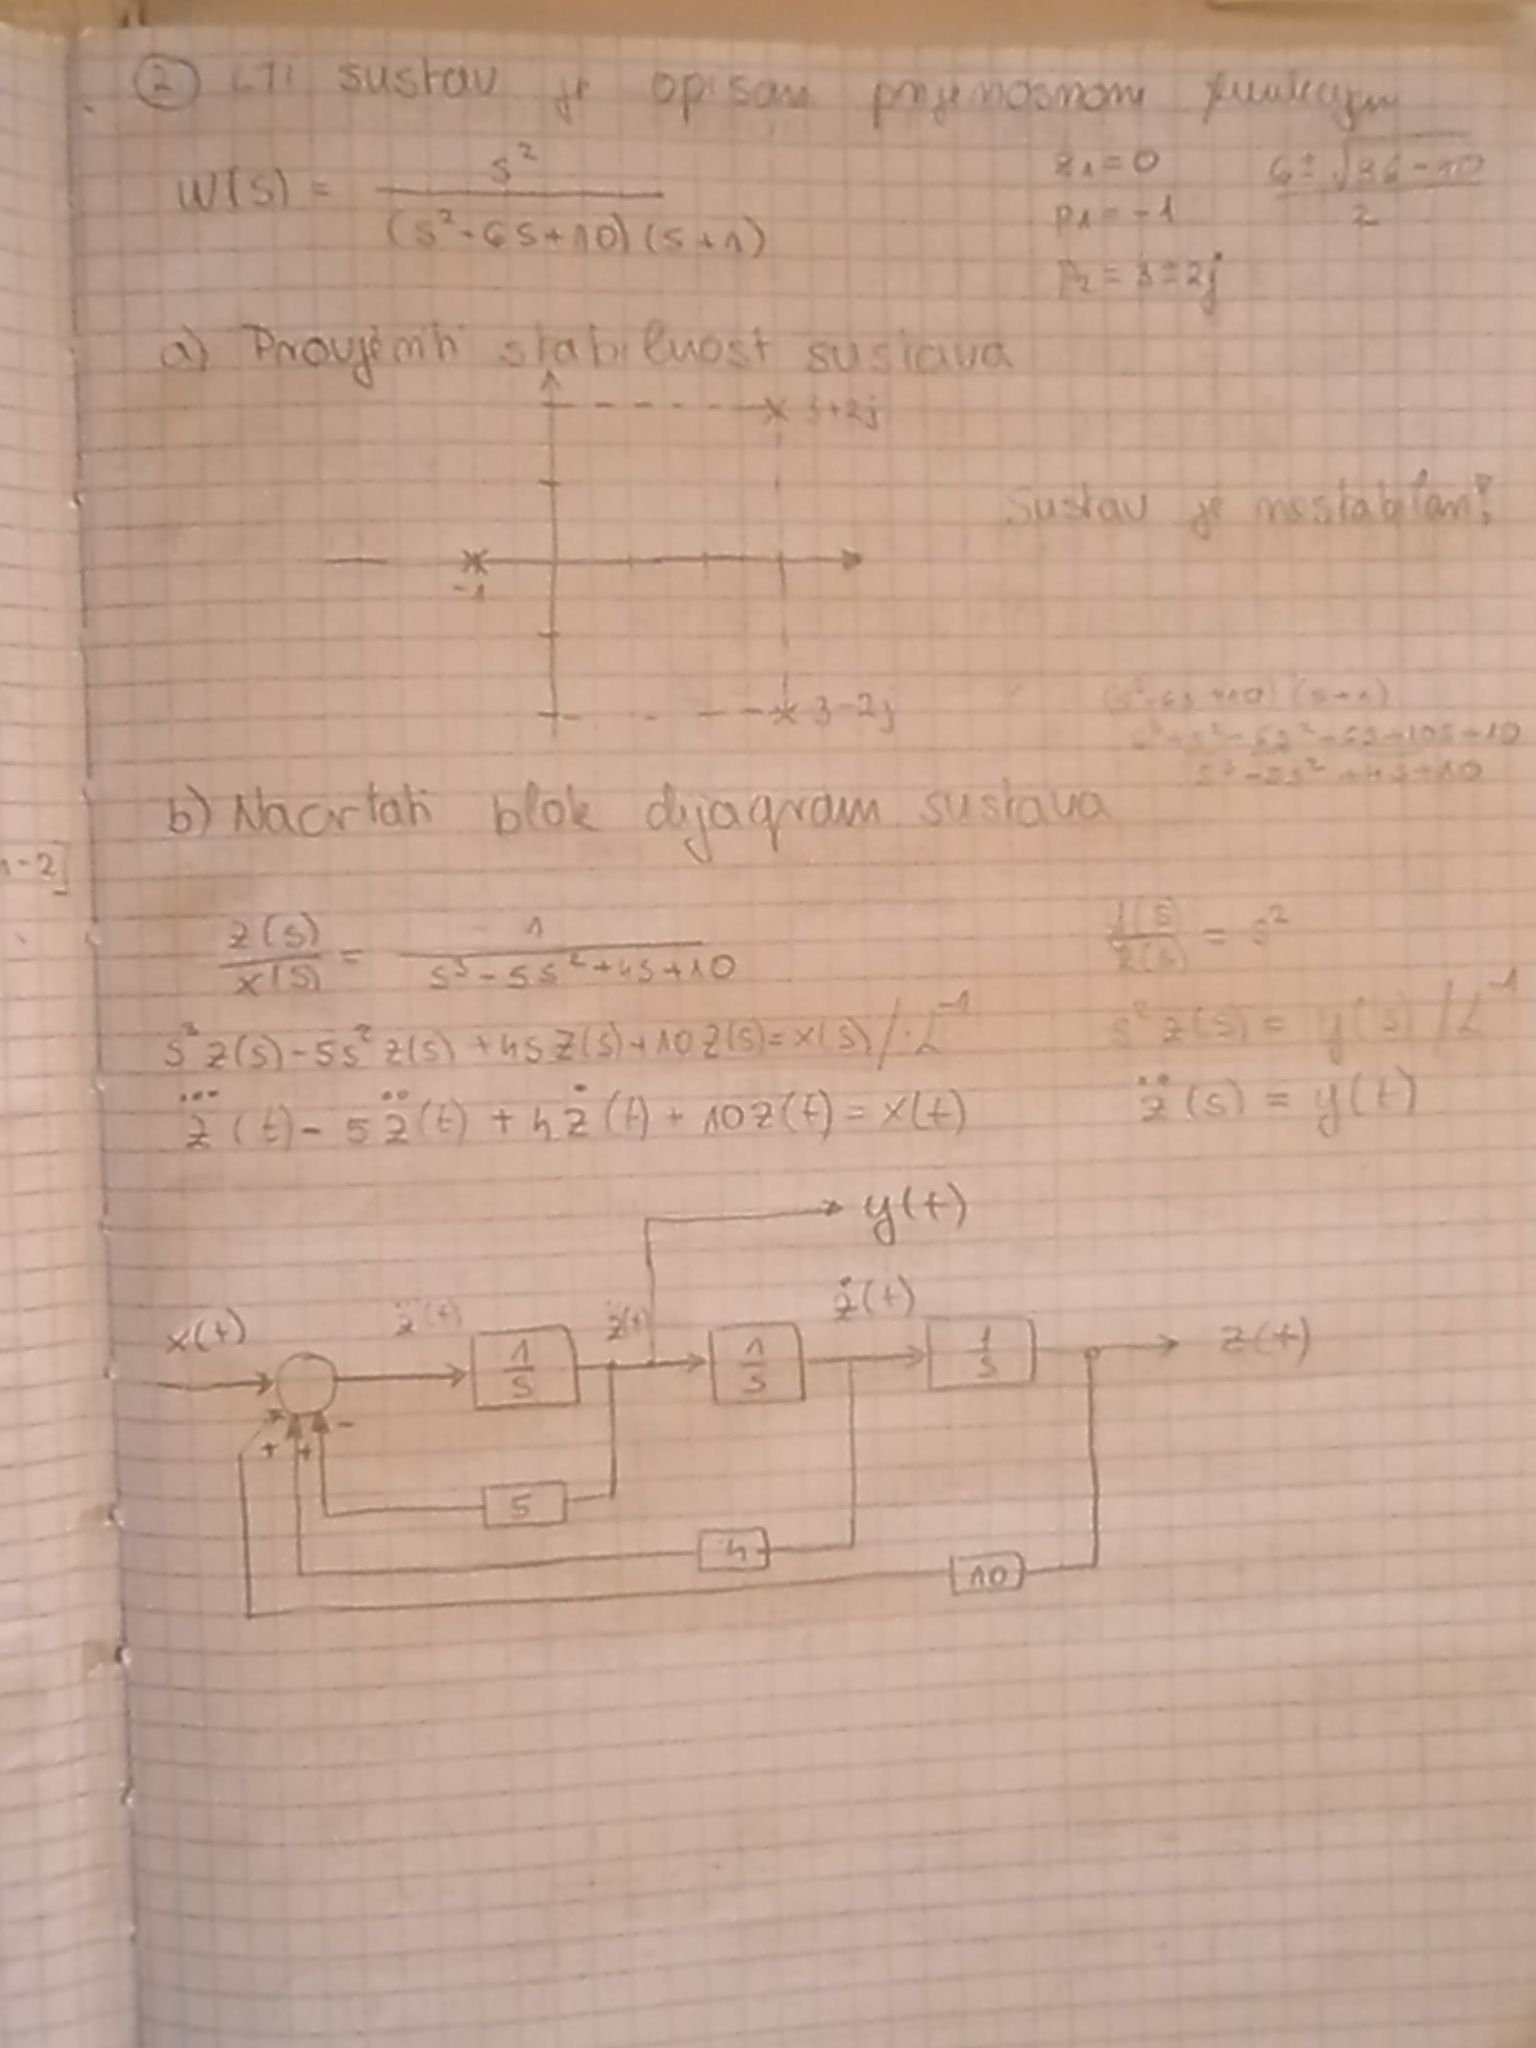 ② LTI sustav je opisan prijenosnom funkcijom
W(s) = s² / (s²-6s+10)(s+1)
z₁ = 0
p₁ = -1
p₂ = 3±2j
6±√36-40 / 2
a) Provjeriti stabilnost sustava
3+2j
Sustav je nestabilan!
-1
3-2j
(s²-6s+10)(s+1)
s³+s²-6s²-6s+10s+10
s³-5s²+4s+10
b) Nacrtati blok dijagram sustava
n-2]
z(s)/x(s) = 1 / s³-5s²+4s+10
y(s)/z(s) = s²
s³z(s)-5s²z(s)+4sz(s)+10z(s)=x(s) /·L⁻¹
s²z(s) = y(s) /L⁻¹
z⃛(t) - 5z̈(t) + 4ż(t) + 10z(t) = x(t)
z̈(s) = y(t)
y(t)
x(t)
z⃛(t)
1/s
z̈(t)
1/s
ż(t)
1/s
z(t)
+ + -
5
4
10